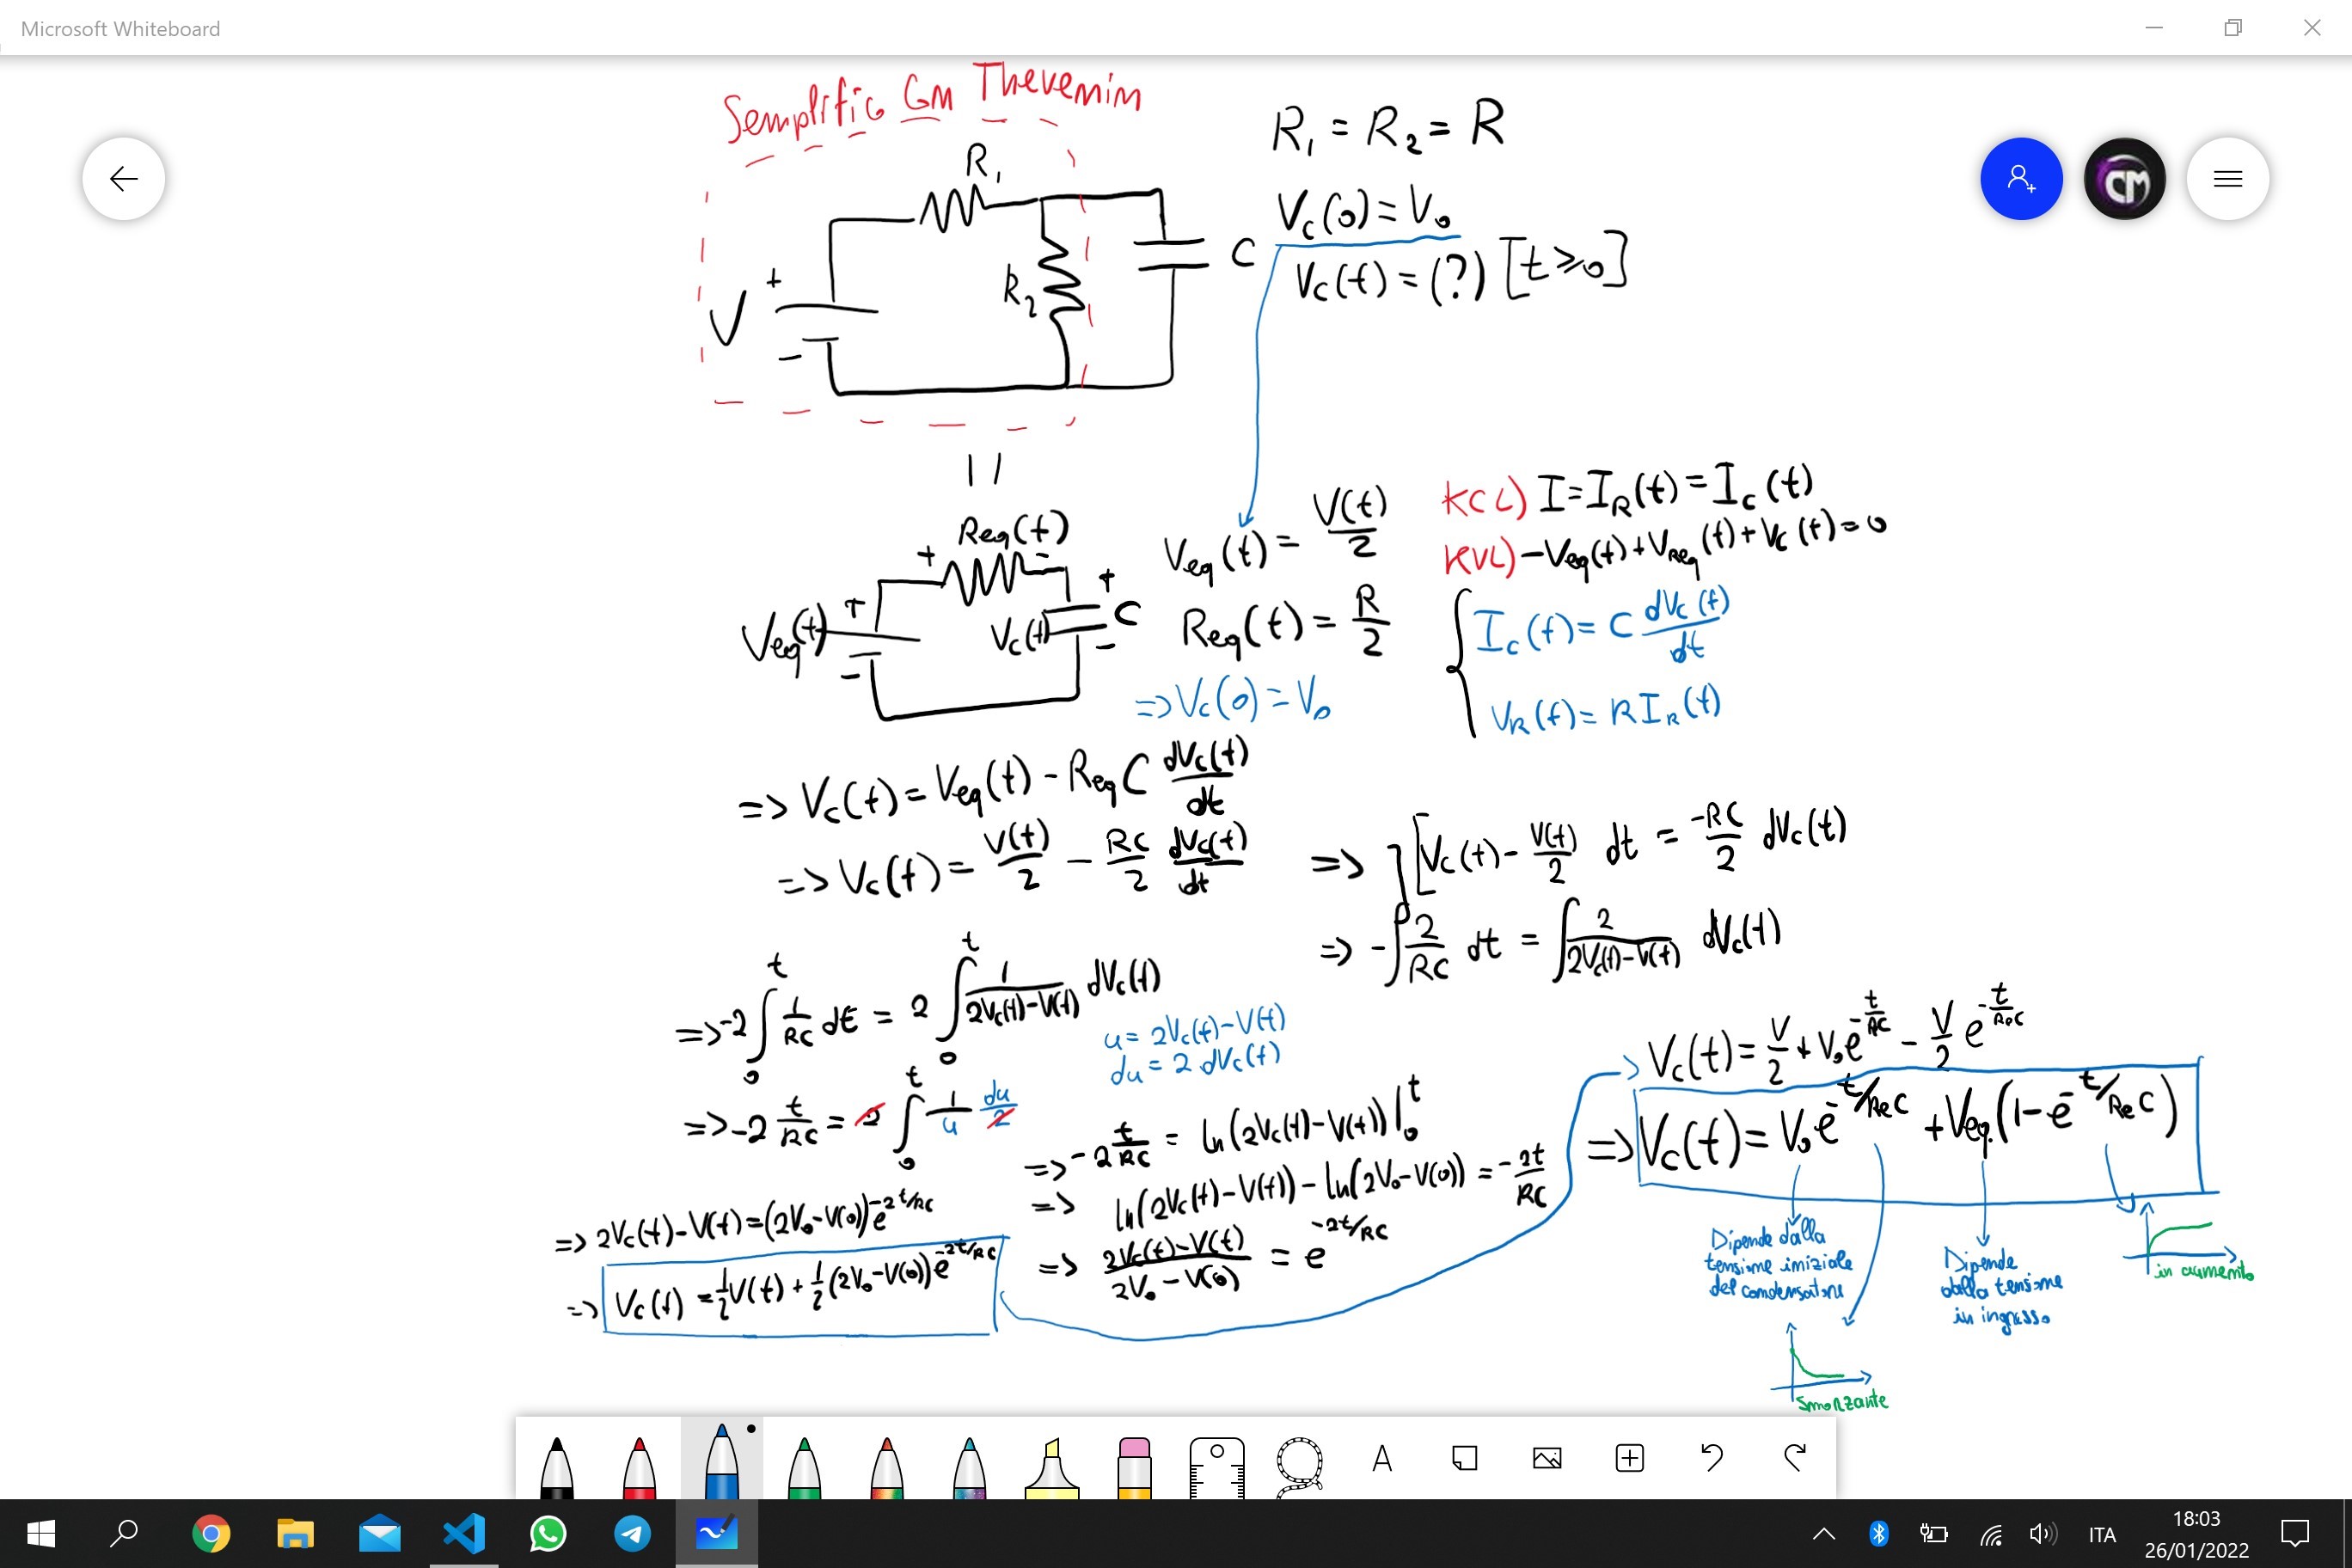 Microsoft Whiteboard
Semplifico Con Thevenin
R₁ = R₂ = R
R₁
Vc(0) = V₀
Vc(t) = (?) [t ≥ 0]
C
R₂
V
+
-
||
Req(t)
+ -
Veq(t)
+
-
Vc(t)
+
-
C
Veq(t) = V(t)/2
Req(t) = R/2
=> Vc(0) = V₀
KCL) I = I_R(t) = Ic(t)
KVL) -Veq(t) + V_Req(t) + Vc(t) = 0
{ Ic(t) = C dVc(t)/dt
V_R(t) = R I_R(t)
=> Vc(t) = Veq(t) - Req C dVc(t)/dt
=> Vc(t) = V(t)/2 - RC/2 dVc(t)/dt
=> [Vc(t) - V(t)/2 dt = -RC/2 dVc(t)
=> -∫ 2/RC dt = ∫ 2/(2Vc(t)-V(t)) dVc(t)
=> -2 ∫₀ᵗ 1/RC dt = 2 ∫₀ᵗ 1/(2Vc(t)-V(t)) dVc(t)
u = 2Vc(t) - V(t)
du = 2 dVc(t)
=> -2 t/RC = 2 ∫₀ᵗ 1/u du/2
=> -2 t/RC = ln(2Vc(t)-V(t)) |₀ᵗ
=> ln(2Vc(t)-V(t)) - ln(2V₀-V(0)) = -2t/RC
=> (2Vc(t)-V(t))/(2V₀-V(0)) = e^(-2t/RC)
=> 2Vc(t)-V(t) = (2V₀-V(0)) e^(-2t/RC)
=> Vc(t) = 1/2 V(t) + 1/2 (2V₀-V(0)) e^(-2t/RC)
Vc(t) = V/2 + V₀ e^(-t/RC) - V/2 e^(-t/ReC)
=> Vc(t) = V₀ e^(-t/ReC) + Veq. (1 - e^(-t/ReC))
Dipende dalla
tensione iniziale
del condensatore
Smorzante
Dipende
dalla tensione
in ingresso
in aumento
CM
A
ITA
18:03
26/01/2022